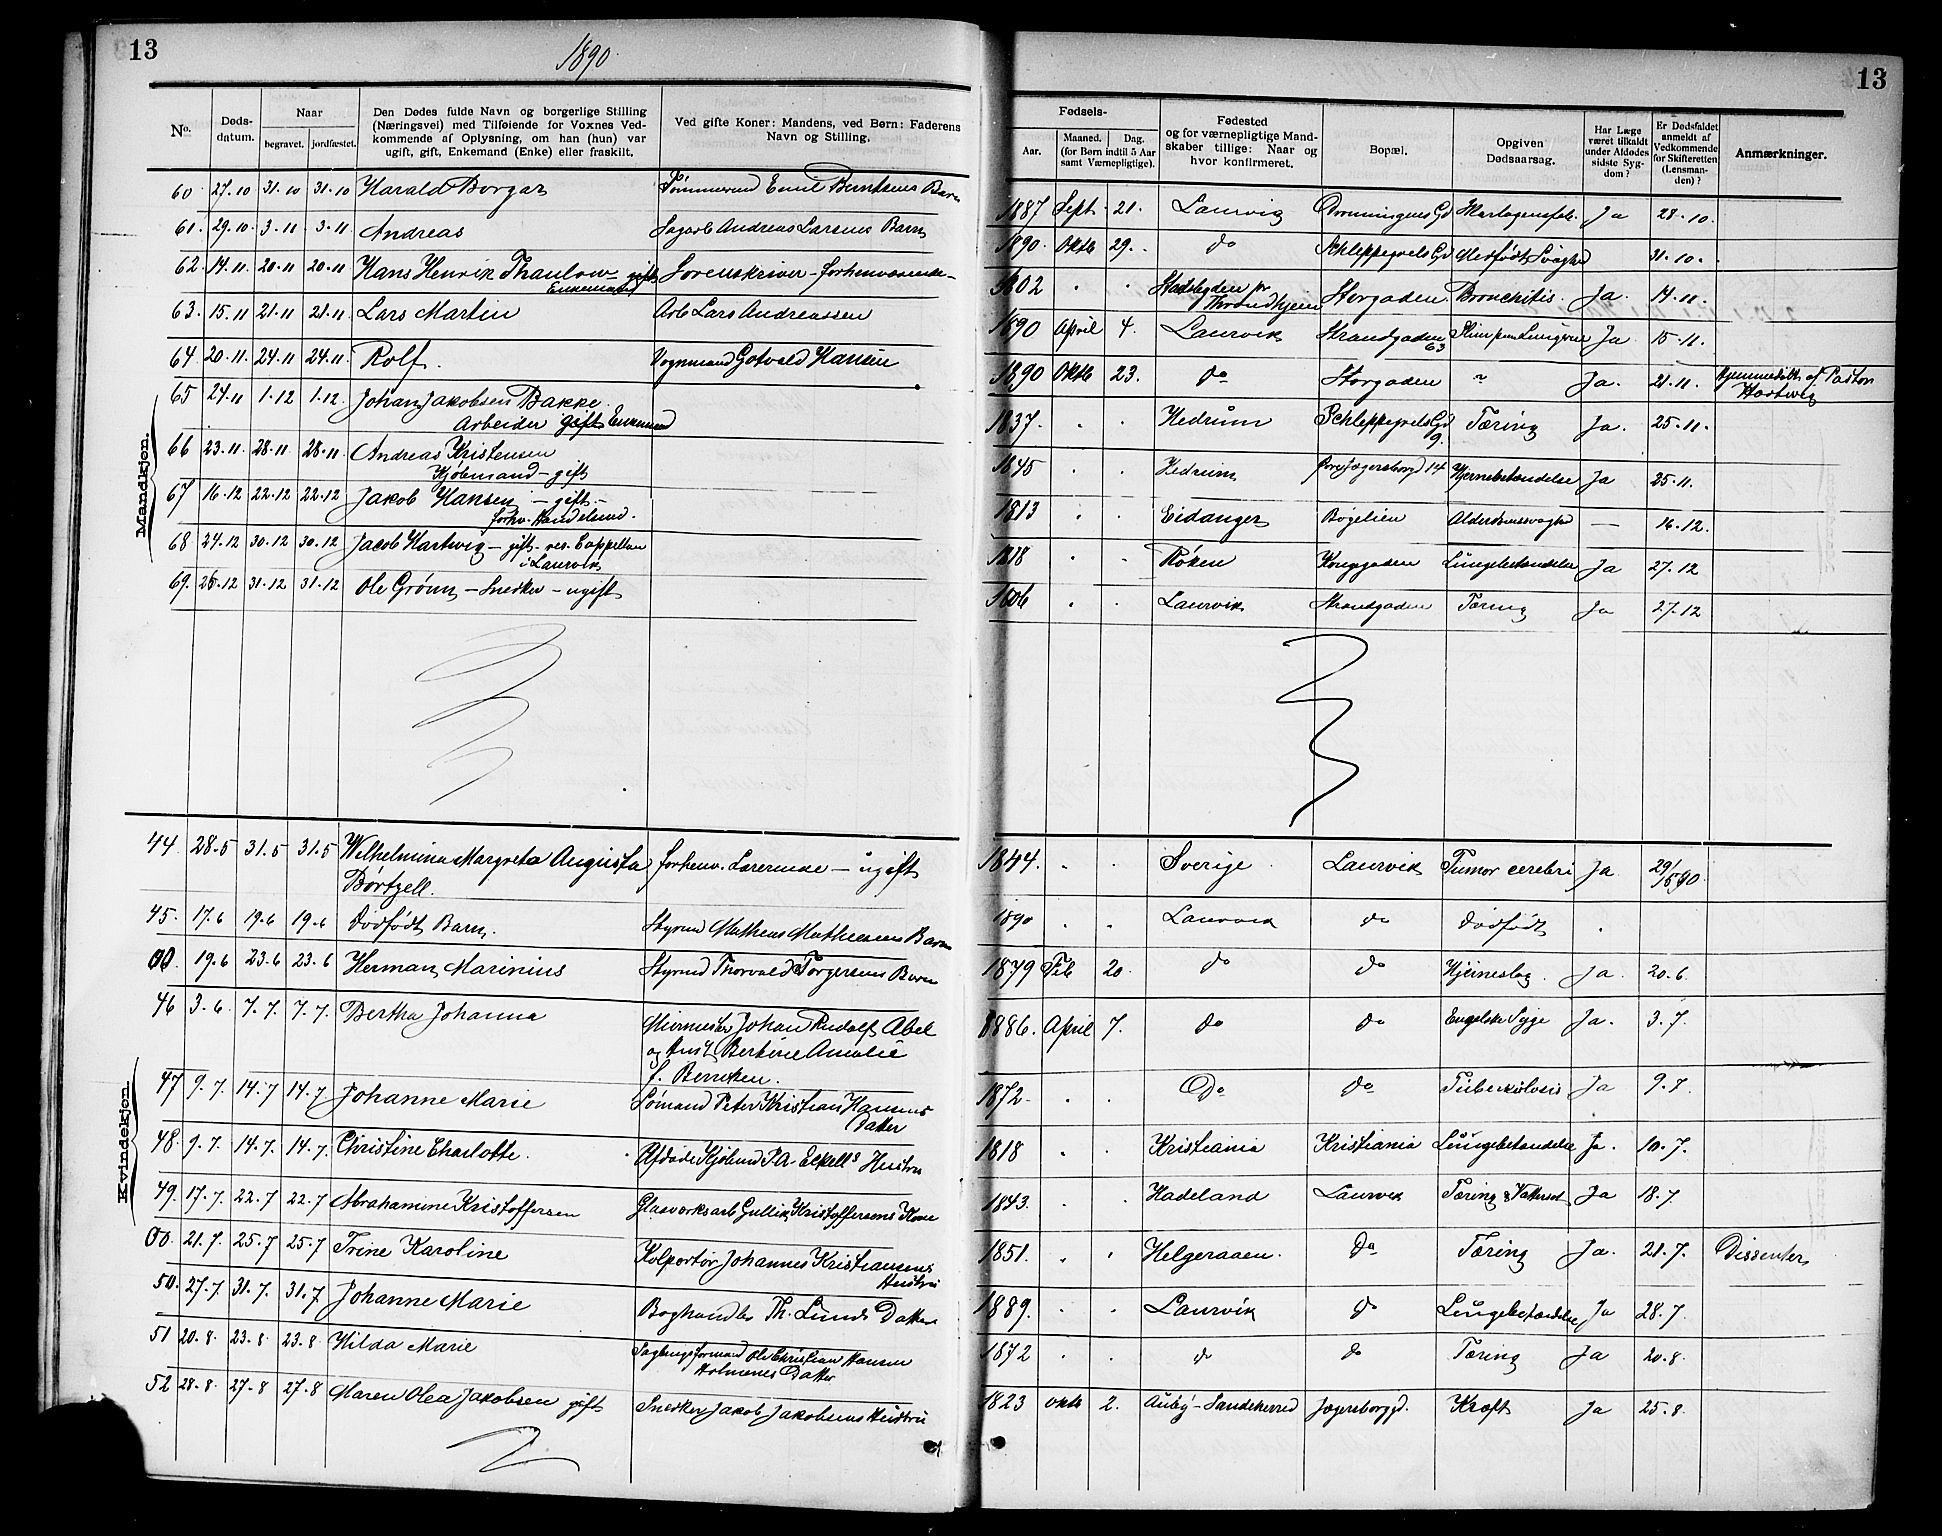 13
1890.
13
No.
Døds-
datum.
Naar
begravet.
jordfæstet.
Den Dødes fulde Navn og borgerlige Stilling
(Næringsvei) med Tilføiende for Voxnes Ved-
kommende af Oplysning, om han (hun) var
ugift, gift, Enkemand (Enke) eller fraskilt.
Ved gifte Koner: Mandens, ved Børn: Faderens
Navn og Stilling.
Fødsels-
Aar.
Maaned.
Dag.
(for Børn indtil 5 Aar
samt Værnepligtige).
Fødested
og for værnepligtige Mand-
skaber tillige: Naar og
hvor konfirmeret.
Bopæl.
Opgiven
Dødsaarsag.
Har Læge
været tilkaldt
under Afdødes
sidste Syg-
dom?
Er Dødsfaldet
anmeldt af
Vedkommende
for Skifteretten
(Lensman-
den)?
Anmærkninger.
Mandkjøn.
60 27.10 31.10 31.10 Harald Borgar Emil Berntsens Barn 1887 Sept. 21. Laurvig Ja 28.10.
61. 29.10 3.11 3.11 Andreas Sagarb Andreas Larsens Barn 1890. Oktb 29. do Schleppegrels Gd Medfødt Svaghed 31.10.
62 14.11 20.11 20.11 Hans Henrik Thaulow - gift Sorenskriver - forhenværende - 1802 . . Stadsbygden pr Storgaden. Bronchitis. Ja. 14.11.
Enkemand Throndhjem
63. 15.11 21.11 21.11 Lars Martin Arb Lars Andreassen 1890 April 4. Laurvik Strandgaden Ja 15.11.
63
64 20.11 24.11 24.11 Rolf. Vognmand Gotvald Hansen 1890 Oktb 23. do Storgaden " Ja. 21.11. Hjemmedøbt af Pastor
Hartwig
65 24.11 1.12 1.12. Johan Jakobsen Bakke. 1837. . . Hedrum Schleppegrels Gd Tæring Ja. 25.11.
Arbeider gift Enkemand 9.
66 23.11 28.11 28.11 Andreas Kristensen 1845 . . Hedrum Jegersborg 14 Hjernebetændelse Ja 25.11.
Kjøbmand - gift
67 16.12 22.12 22.12 Jakob Hansen - gift - 1813 . . Eidanger Bøgelien Alderdomssvaghed — 16.12.
forhv. Handelsmd.
68 24.12 30.12 30.12 Jacob Hartwig - gift - res. Cappellan 1818 . . Røken Kongegaden Lungebetændelse Ja 27.12
i Laurvik
69. 26.12 31.12 31.12 Ole Grønn - Snedker - ugift . . Laurvik Strandgaden Tæring Ja 27.12
Kvindekjøn.
44 28.5 31.5 31.5 Wilhelmina Margreta Augusta forhenv. Lærerinde - ugift 1844. . . Sverige Laurvik Tumor cerebri Ja 29/5 90
Börtzell.
45. 17.6 19.6 19.6 Dødfødt Barn. Styrmd Matheus Mathiesens Barn 1890 . . Laurvik do Dødfødt .
00. 19.6 23.6 23.6 Herman Marinius Styrmd Thorvald Torgersens Barn 1879 Feb 20. do do Ja. 20.6.
46 3.6 7.7. 7.7. Bertha Johanna Murmester Johan Rudolf Abel 1886. April 7. do do Engelske Syge Ja. 3.7.
og Hust Bertine Amalie
f. Berntsen.
47 9.7. 14.7 14.7 Johanne Marie Sømand Peter Kristian Hansens 1872 . . Do do Tuberkulosis Ja 9.7
Datter
48. 9.7. 14.7. 14.7. Christine Charlotte. Afdøde Kjøbmd P.A. Eckells Hustru 1818 . . Kristiania Kristiania Lungebetændelse Ja. 10.7.
49. 17.7. 22.7 22.7 Abrahamine Kristoffersen Glasværksarb Gullik Kristoffersens Kone 1843. . Hadeland Laurvik Tæring & Vattersot Ja 18.7.
00. 21.7. 25.7 25.7 Trine Karoline Kolportør Johannes Kristiansens 1851. . . Helgeraaen. do Tæring Ja. 21.7. Dissenter
Hustru
50. 27.7 31.7. 31.7 Johanne Marie Boghandler Th. Lunds Datter 1889. . . Laurvik do Lungebetændelse Ja 28.7.
51 20.8 23.8 23.8 Hilda Marie Sagbrugsformand Ole Christian Hansen 1872 . . do do Tæring Ja 20.8.
Holmenes Datter
52 28.8. 27.8 27.8 Maren Olea Jakobsen gift Snedker Jakob Jakobsens Hustru 1823 Oktb 2. Auby - Sandeherred Jægersborggd. Kræft Ja 25.8.